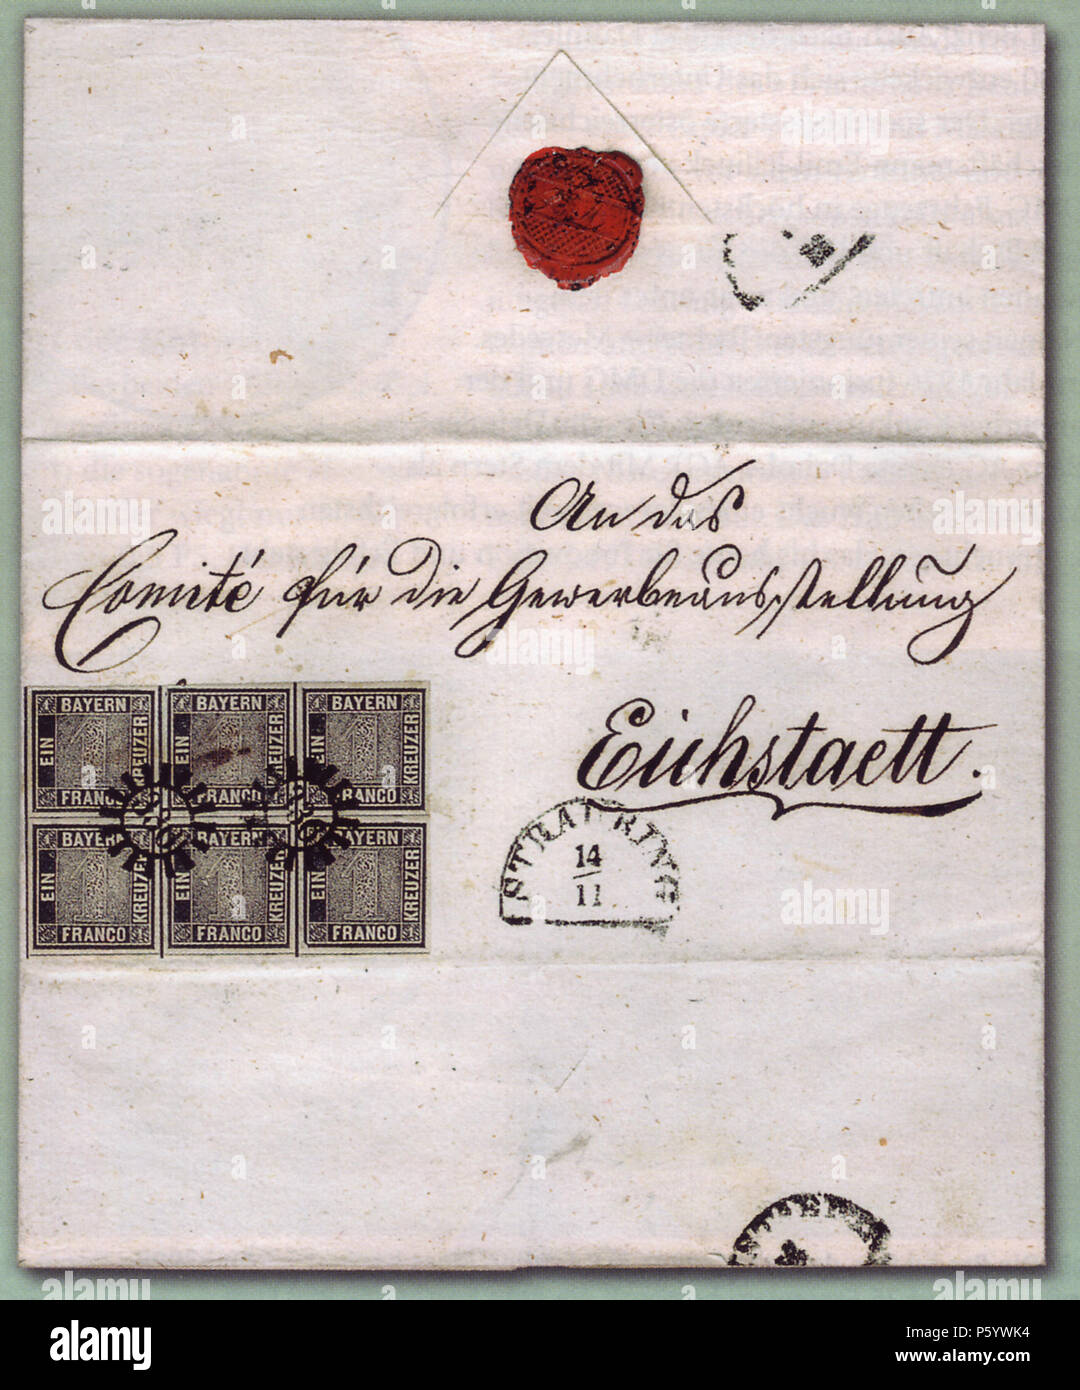 An das
Comité für die Gewerbeausstellung
Eichstaett.
BAYERN BAYERN BAYERN
EIN 1 KREUZER EIN 1 KREUZER EIN 1 KREUZER
FRANCO FRANCO FRANCO
BAYERN BAYERN BAYERN
EIN 1 KREUZER EIN 1 KREUZER EIN 1 KREUZER
FRANCO FRANCO FRANCO
STRAUBING
14
11
alamy stock photo
alamy
Image ID: P5YWK4
www.alamy.com